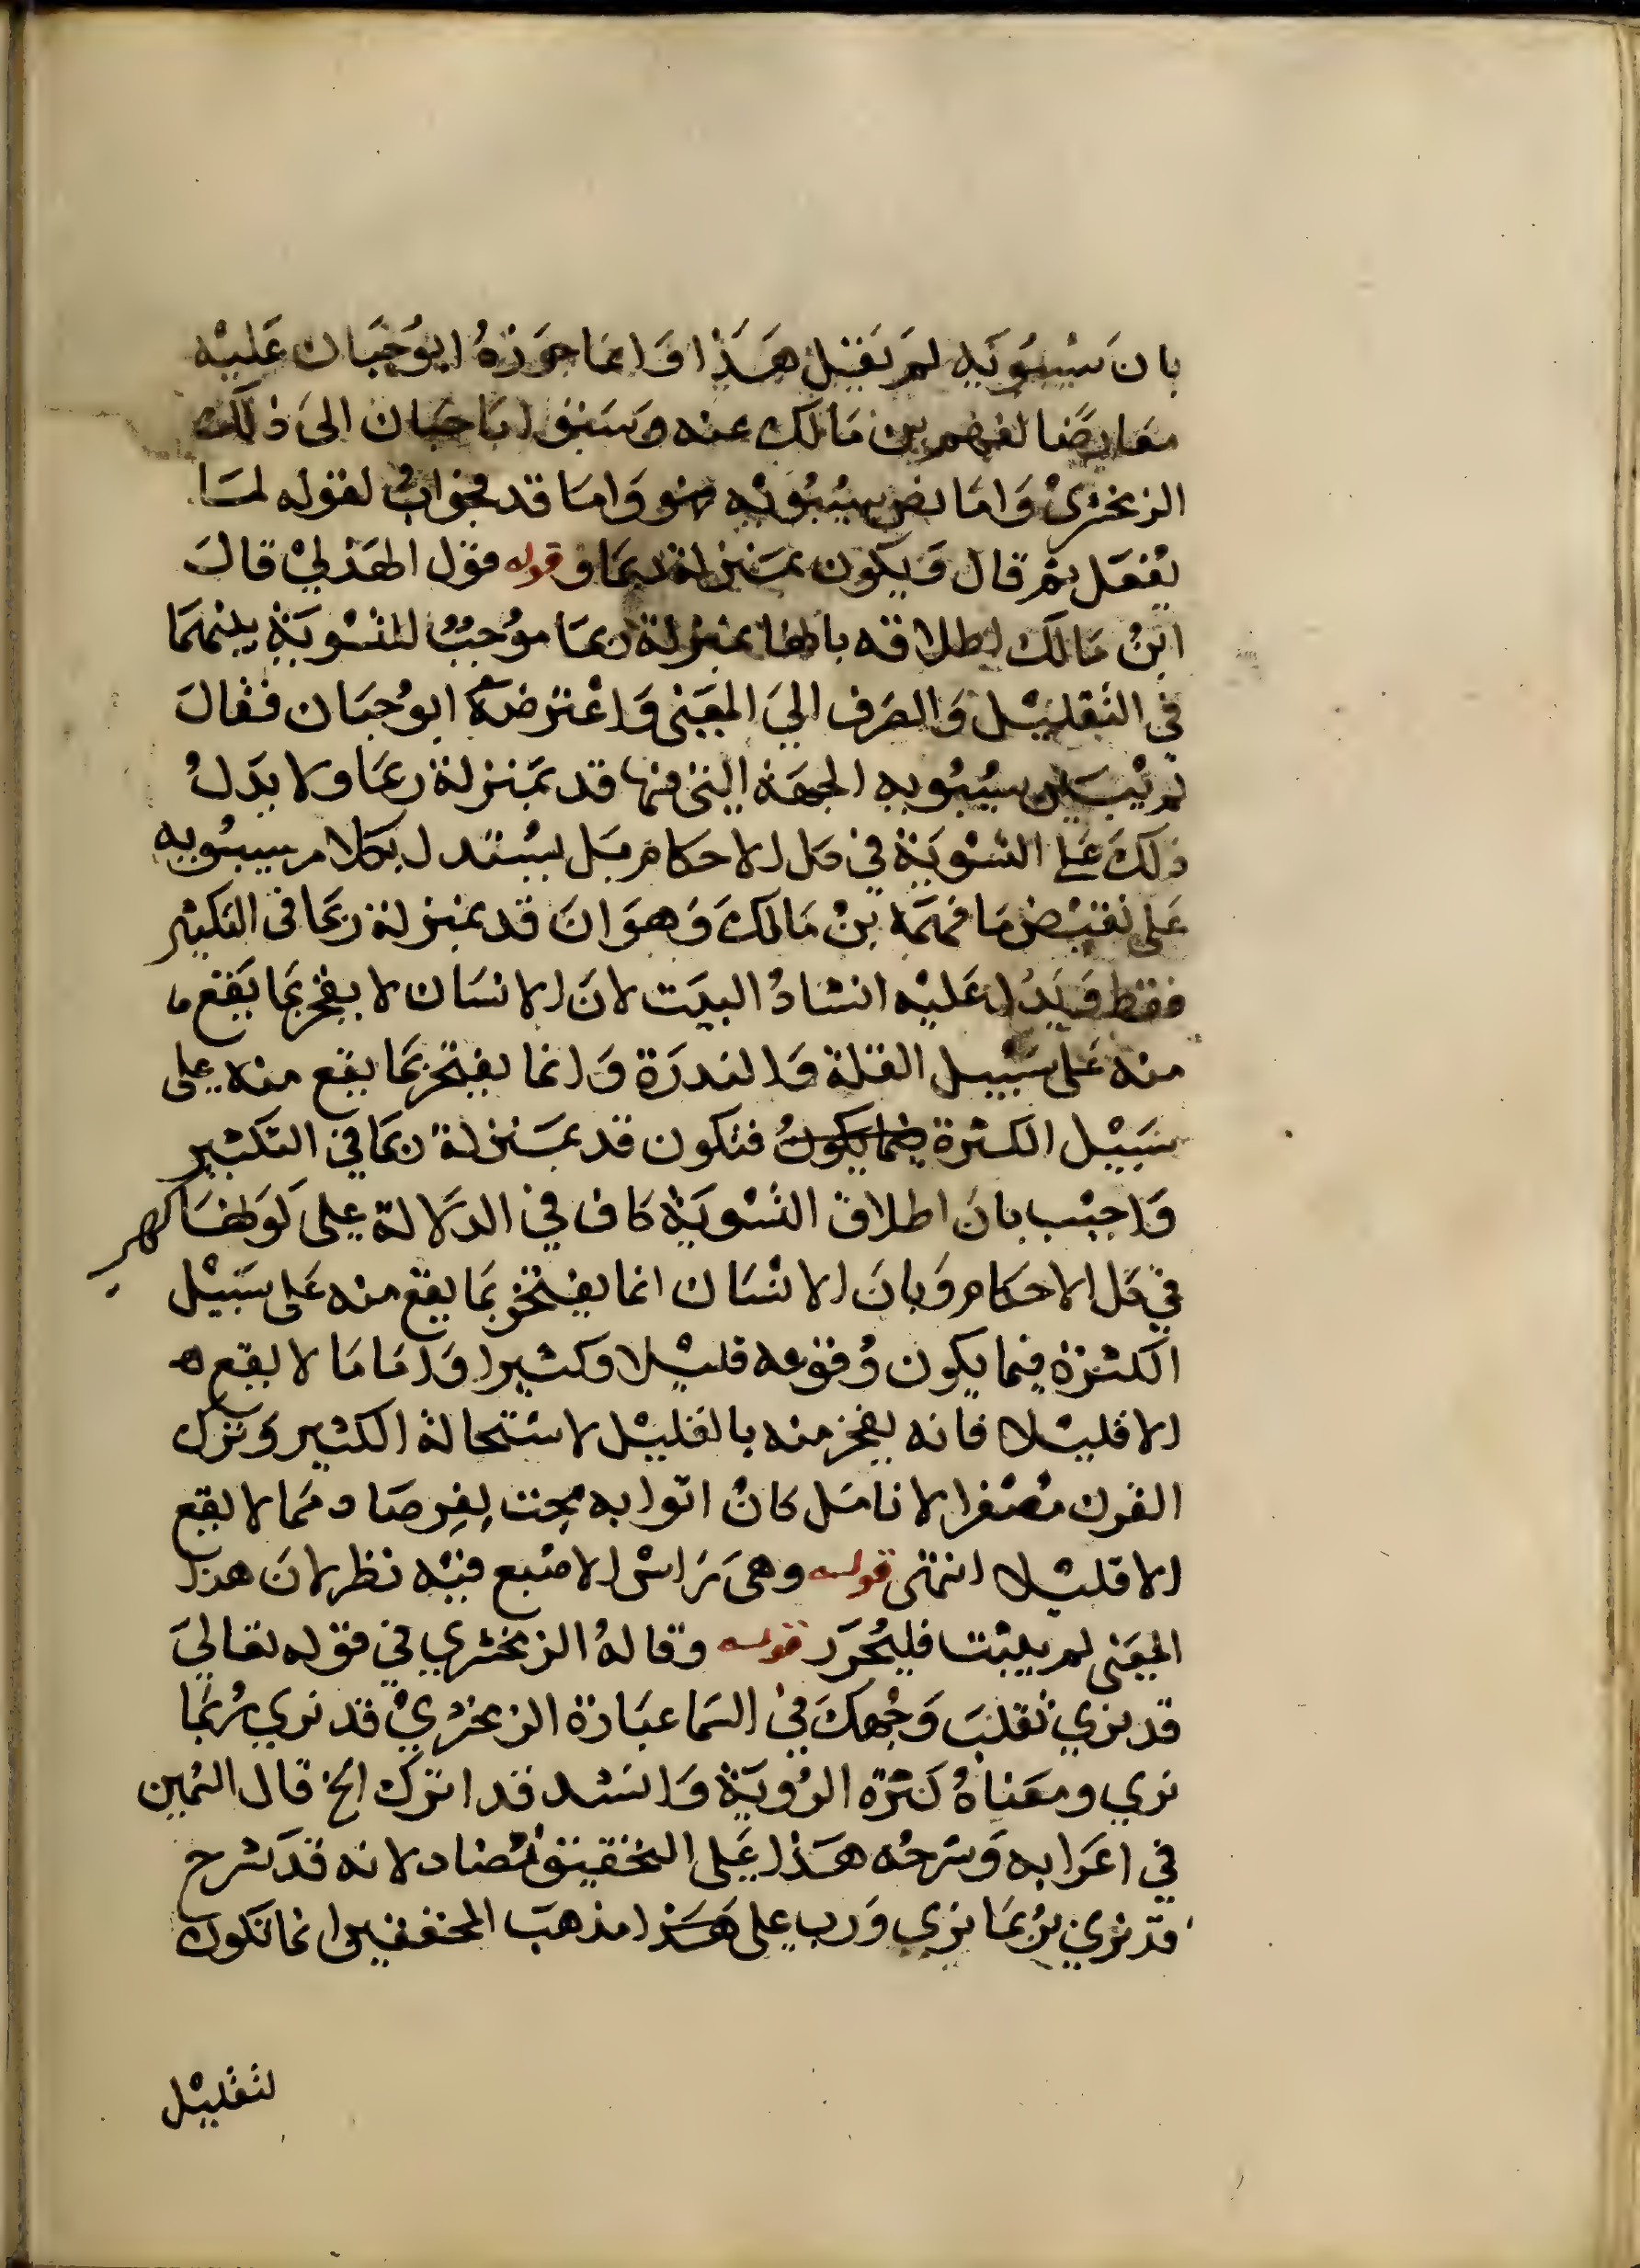 بان سيبويه لم يقل هذا وانما جوزه ابو حيان عليه
معارضا لفهم بن مالك عنه وسبق ابا حيان الى ذلك
الزمخشري واما نص سيبويه هو واما قد فجواب لقوله لما
يفعل ثم قال ويكون بمنزلة ربما وقوله قول الهذلي قال
ابن مالك اطلاقه بانها بمنزلة ربما موجب للتسوية بينهما
في التقليل والصرف الي المعنى واعترضه ابو حيان فقال
لم يبين سيبويه الجهة التي فيها قد بمنزلة ربما ولا يدل
ذلك على التسوية في كل الاحكام بل يستدل بكلام سيبويه
على نقيض ما فهمه بن مالك وهو ان قد بمنزلة ربما في التكثير
فقط ويدل عليه انشاد البيت لان الانسان لا يفخر بما يقع
منه على سبيل القلة والندرة وانما يفتخر بما يقع منه على
سبيل الكثرة فيما يكون فتكون قد بمنزلة ربما في التكثير
واجيب بان اطلاق التسوية كاف في الدلالة على كونها كهي
في كل الاحكام وبان الانسان انما يفتخر بما يقع منه على سبيل
الكثرة فيما يكون وقوعه قليلا وكثيرا واما ما لا يقع
الا قليلا فانه يفخر منه بالقليل لاستحالة الكثير وترك
القرن مصفرا لانامل كان اثوابه مجت بفرصاد مما لا يقع
الا قليلا انتهى قوله وهي راس الاصبع فيه نظر لان هذا
المعنى لم يثبت فليحرر قوله وقاله الزمخشري في قوله تعالي
قد نري تقلب وجهك في السما عبارة الزمخشري قد نري ربما
نري ومعناه كثرة الروية وانشد قد اترك الخ قال السمين
في اعرابه وشرحه هذا على التحقيق متضاد لانه قد شرح
قد نري بربما نري ورب على هذا مذهب المحققين انما تكون
لتقليل